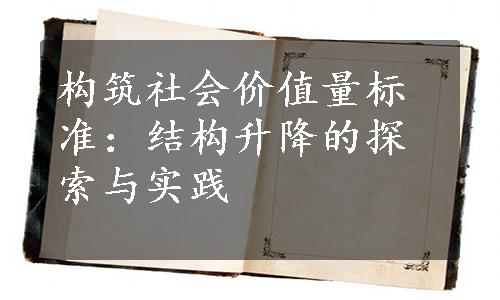 构筑社会价值量标
准：结构升降的探
索与实践